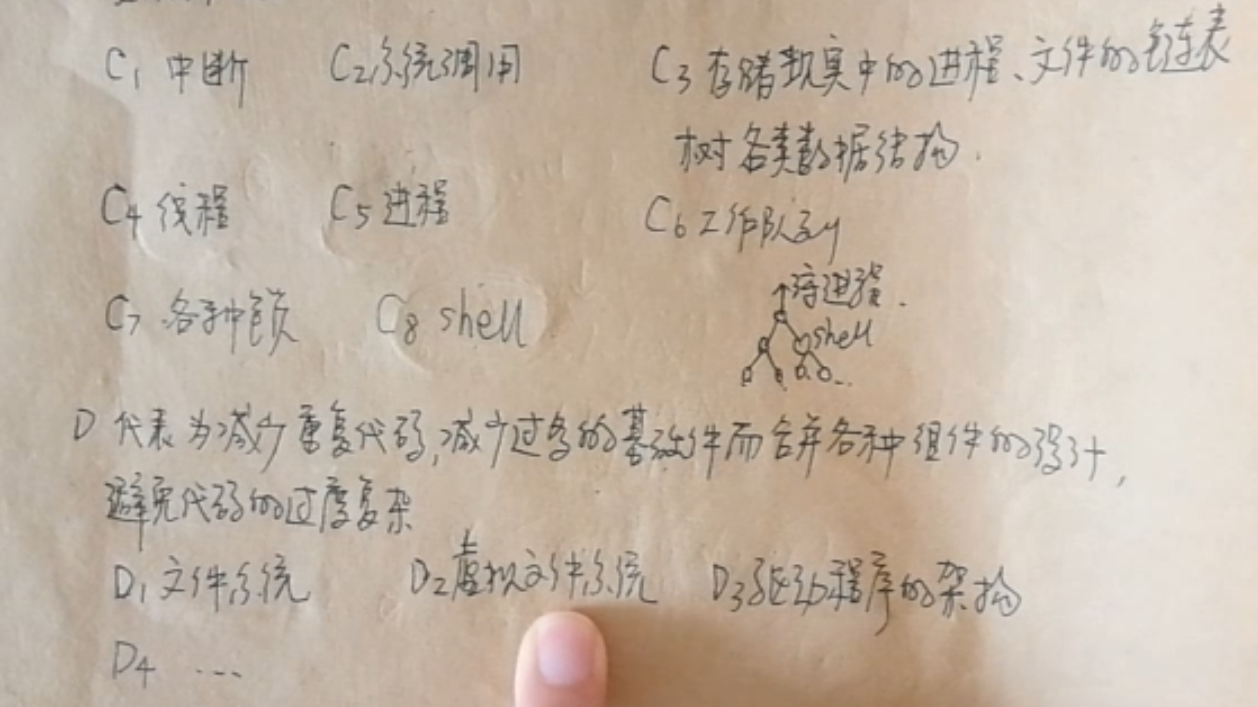 C1 中断 C2 系统调用 C3 存储现实中的进程、文件的链表
树各类数据结构.
C4 线程 C5 进程 C6 工作队列
C7 各种锁 C8 shell
进程.
shell
D 代表为减少重复代码,减少过多的基础件而合并各种组件的设计,
避免代码的过度复杂
D1 文件系统 D2 虚拟文件系统 D3 驱动程序的架构
D4 ...